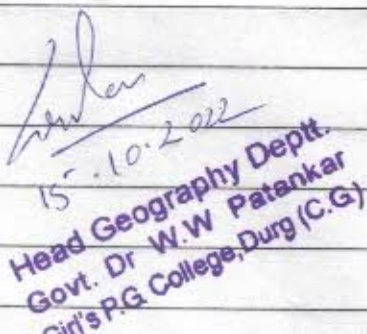 15.10.2022
Head Geography Deptt.
Govt. Dr W.W Patankar
Girl's P.G College, Durg (C.G)